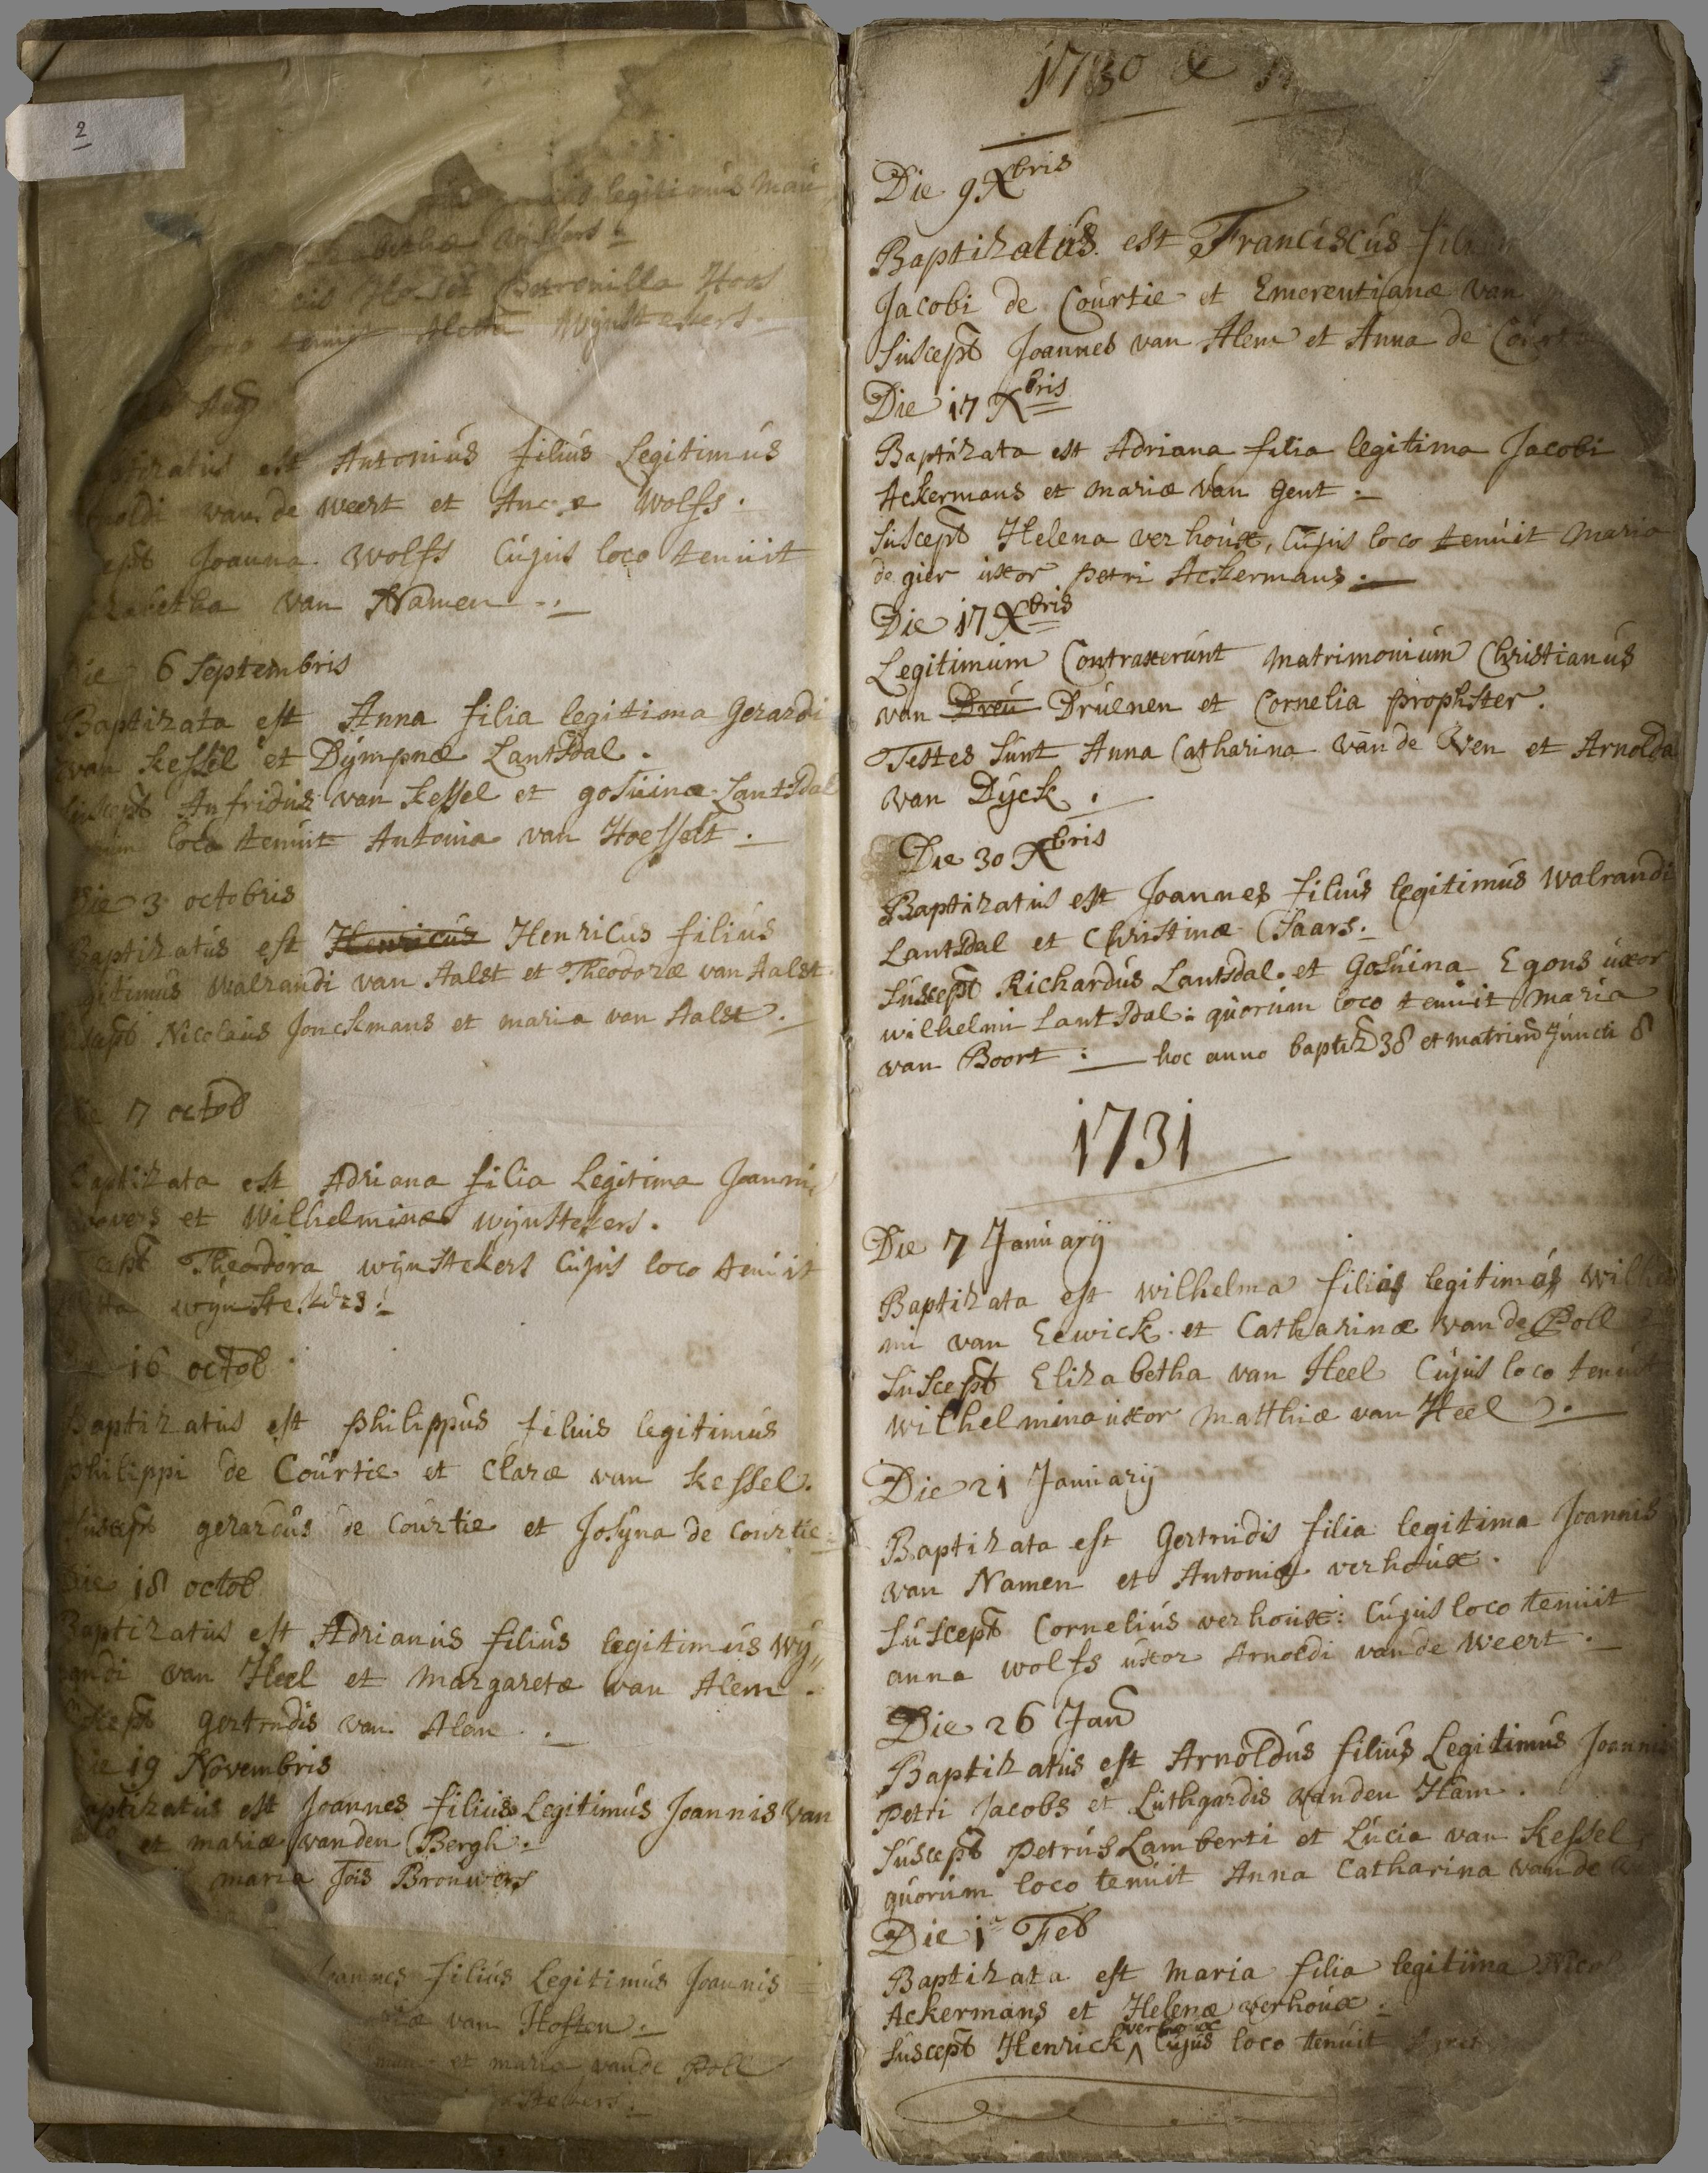 2
legitimus
Petronilla Hoos
tenuit Aletta Wijnstekers
Aug
est Antonius filius Legitimus
van de Weert et Annæ Wolfs.
Joanna Wolfs Cujus loco tenuit
van Namen
Die 6 Septembris
Baptizata est Anna filia legitima Gerardi
van Kessel et Dympnæ Lantsdal.
Suscept Anfridus van Kessel et Gosuina Lantsdal
loco tenuit Antonia van Hoesselt.
Die 3 octobris
Baptizatus est Henricus Henricus filius
Walrandi van Aalst et Theodoræ van Aalst.
Nicolaus Jonckmans et maria van Aalst.
7 octob
Baptizata est Adriana filia Legitima Joannis
et Wilhelminæ wijnstekers.
Theodora wijnstekers Cujus loco tenuit
wijnstekers.
16 octob
Baptizatus est Philippus filius legitimus
Philippi de Courtie et Claræ van Kessel.
Suscept gerardus de Courtie et Josyna de Courtie
Die 18 octob
Baptizatus est Adrianus filius legitimus Wij„
van Heel et Margaretæ van Alem.
gertrudis van Alem.
19 Novembris
est Joannes filius Legitimus Joannis van
et mariæ vanden Bergh.
maria Jois Brouwers
Joannes filius Legitimus Joannis
van Hosten.
et maria vande Poll
1730
Die 9 Xbris
Baptizatus est Franciscus
Jacobi de Courtie et Emerentianæ van
Suscept Joannes van Alem et Anna de
Die 17 Xbris
Baptizata est Adriana filia legitima Jacobi
Ackermans et mariæ van Gent.
Suscept Helena verhoux, Cujus loco tenuit Maria
de gier uxor Petri Ackermans.
Die 17 Xbris
Legitimum Contraxerunt Matrimonium Christianus
van Dreu Druenen et Cornelia prophster.
Testes Sunt Anna Catharina van de Ven et Arnolda
van Dyck.
Die 30 Xbris
Baptizatus est Joannes filius legitimus Walrandi
Lantsdal et Christinæ Claars.
Suscept Richardus Lantsdal et Gosuina Egons uxor
wilhelmi Lantsdal: quorum loco tenuit Maria
van Boort: hoc anno baptiz 38 et matrim Juncti 8
1731
Die 7 Januarij
Baptizata est Wilhelma filia legitima
mi van Eewick et Catharinæ van de Poll
Suscept Elizabetha van Heel Cujus loco tenuit
Wilhelmina uxor Matthiæ van Heel.
Die 21 Januarij
Baptizata est Gertrudis filia legitima Joannis
van Namen et Antoniæ verhoux.
Suscept Cornelius verhoux: Cujus loco tenuit
anna Wolfs uxor Arnoldi van de Weert.
Die 26 Jan
Baptizatus est Arnoldus filius Legitimus Joannis
Petri Jacobs et Luthgardis vanden Ham.
Suscept Petrus Lamberti et Lucia van Kessel
quorum loco tenuit Anna Catharina van de
Die 1a Feb
Baptizata est Maria filia legitima
Ackermans et Helenæ verhoux.
Suscept Henrick verhoux Cujus loco tenuit